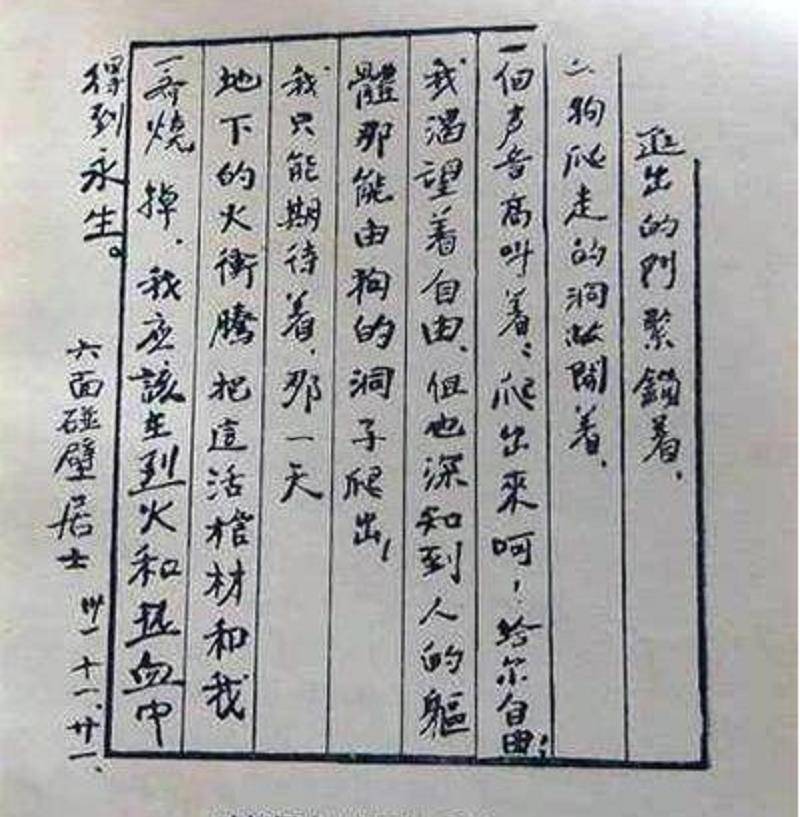 進出的门緊鎖着、
狗爬走的洞敞開着、
一個声音高叫着：爬出來呵！给尔自由；
我渴望着自由、但也深知到人的軀
體那能由狗的洞子爬出！
我只能期待着、那一天
地下的火衝騰把這活棺材和我
一齊燒掉、我应該在烈火和热血中
得到永生。
六面碰壁居士 卅一、十一、廿一、